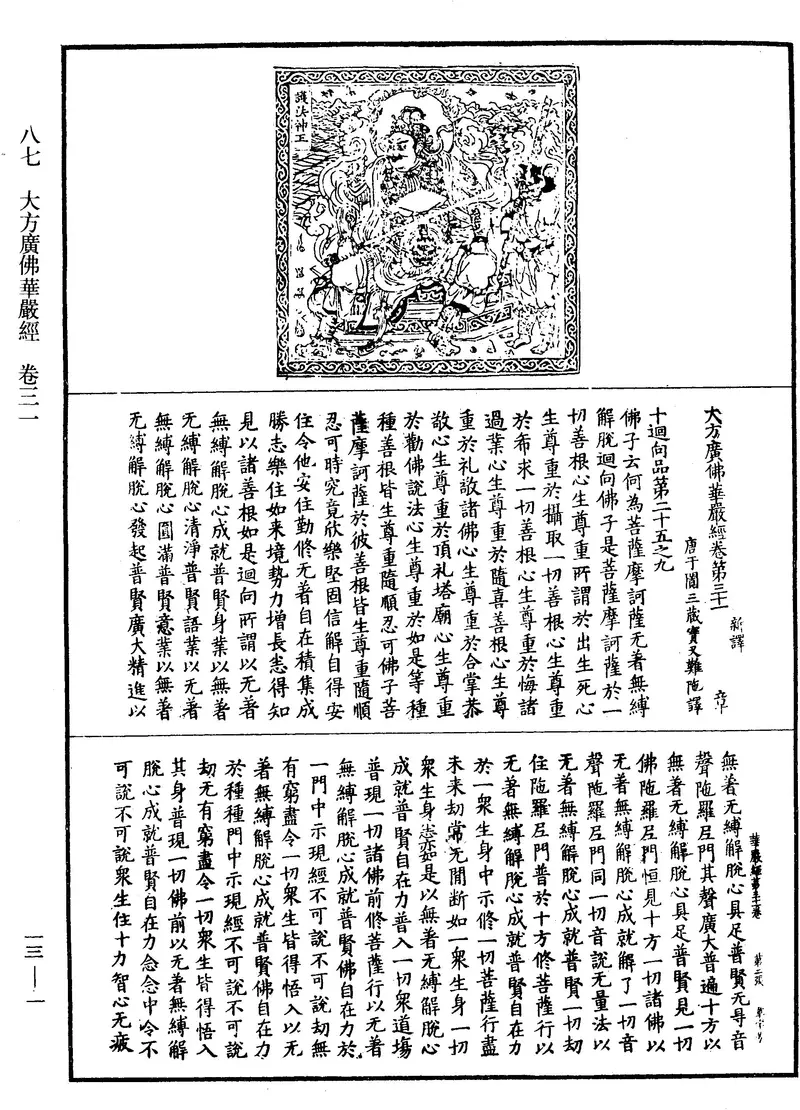 八七 大方廣佛華嚴經 卷三一
一三—一
護法神王
大方廣佛華嚴經卷第三十一 新譯 章
唐于闐三藏實叉難陁譯
十迴向品第二十五之九
佛子云何為菩薩摩訶薩无著無縛
解脫迴向佛子是菩薩摩訶薩於一
切善根心生尊重所謂於出生死心
生尊重於攝取一切善根心生尊重
於希求一切善根心生尊重於悔諸
過業心生尊重於隨喜善根心生尊
重於礼敬諸佛心生尊重於合掌恭
敬心生尊重於頂礼塔廟心生尊重
於勸佛說法心生尊重於如是等種
種善根皆生尊重隨順忍可佛子菩
薩摩訶薩於彼善根皆生尊重隨順
忍可時究竟欣樂堅固信解自得安
住令他安住勤修无著自在積集成
勝志樂住如来境勢力增長悉得知
見以諸善根如是迴向所謂以无著
無縛解脫心成就普賢身業以無著
无縛解脫心清淨普賢語業以无著
無縛解脫心圓滿普賢意業以無著
无縛解脫心發起普賢廣大精進以
華嚴經第三十一卷 第二張
無著无縛解脫心具足普賢无㝵音
聲陁羅尼門其聲廣大普遍十方以
無著无縛解脫心具足普賢見一切
佛陁羅尼門恒見十方一切諸佛以
无著無縛解脫心成就解了一切音
聲陁羅尼門同一切音說无量法以
无著無縛解脫心成就普賢一切劫
住陁羅尼門普於十方修菩薩行以
无著無縛解脫心成就普賢自在力
於一衆生身中示修一切菩薩行盡
未来劫常无間斷如一衆生身一切
衆生身悉如是以無著无縛解脫心
成就普賢自在力普入一切衆道場
普現一切諸佛前修菩薩行以无著
無縛解脫心成就普賢佛自在力於
一門中示現經不可說不可說劫無
有窮盡令一切衆生皆得悟入以无
著無縛解脫心成就普賢佛自在力
於種種門中示現經不可說不可說
劫无有窮盡令一切衆生皆得悟入
其身普現一切佛前以无著無縛解
脫心成就普賢自在力念念中令不
可說不可說衆生住十力智心无疲